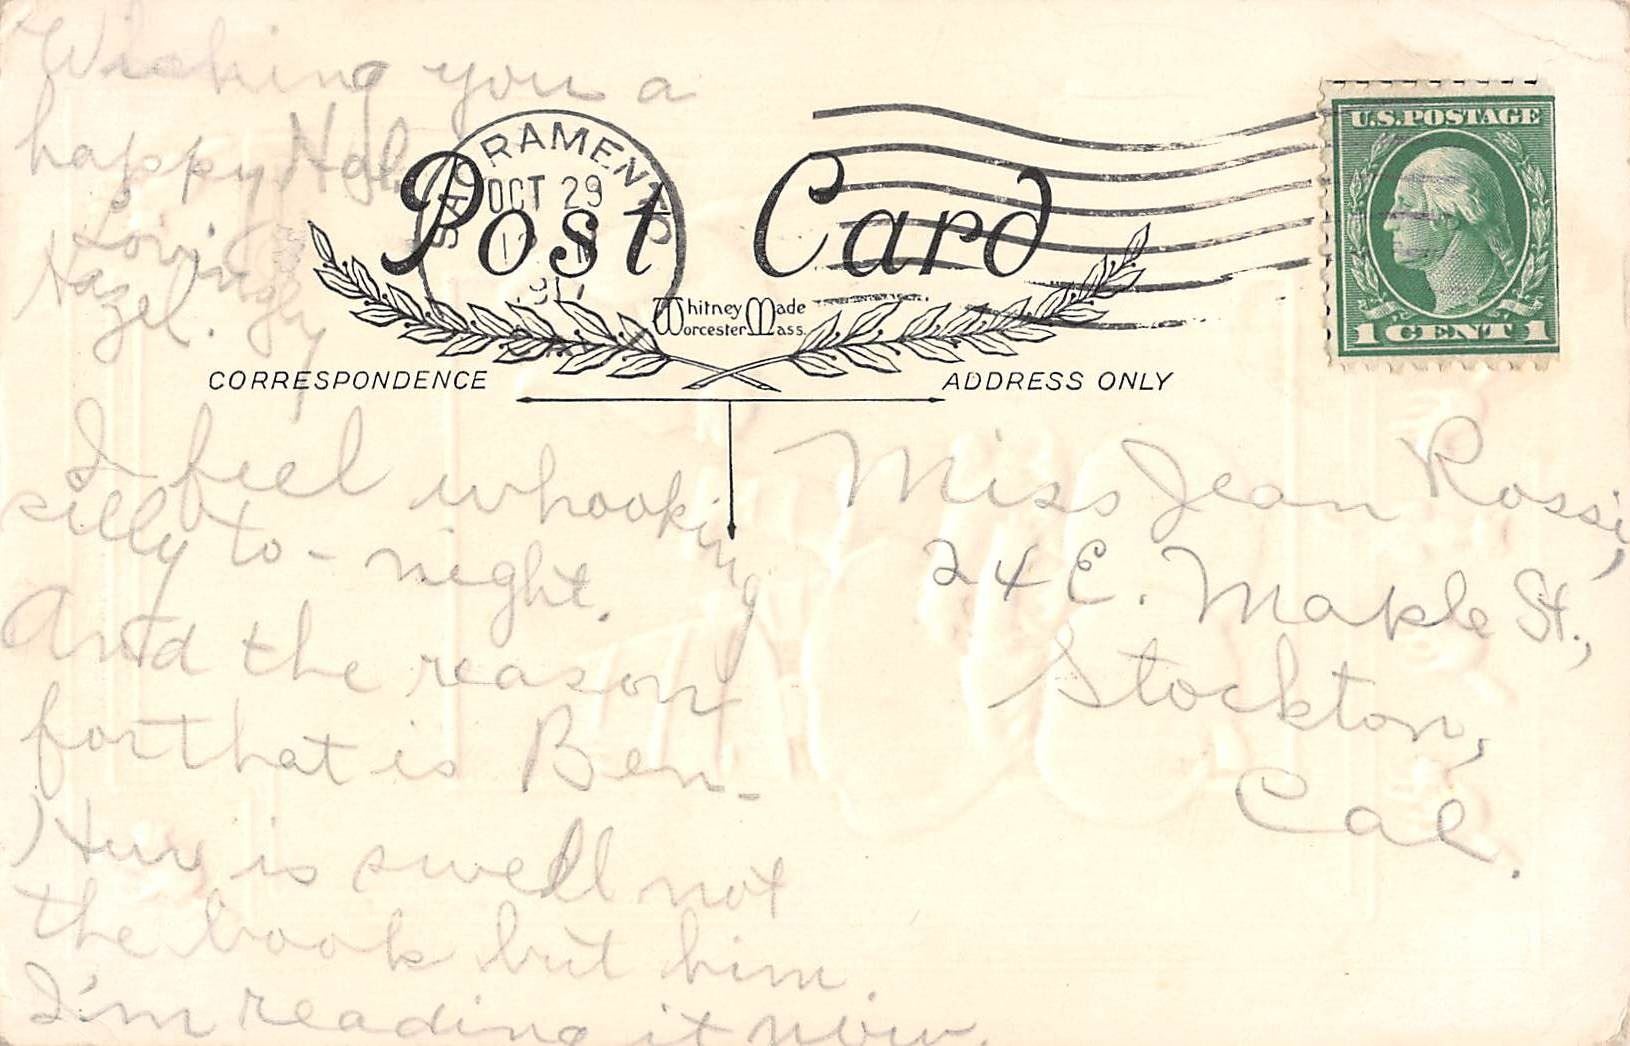 Wishing you a
happy Hal.
Lovingly
Hazel.
I feel whooking
silly to-night.
And the reason
for that is Ben-
Hur is swell not
the book but him.
I'm reading it now.
SACRAMENTO
OCT 29
Post Card
Whitney Made
Worcester Mass.
CORRESPONDENCE
ADDRESS ONLY
U.S. POSTAGE
1 CENT 1
Miss Jean Rossi,
24 E. Maple St.,
Stockton,
Cal.